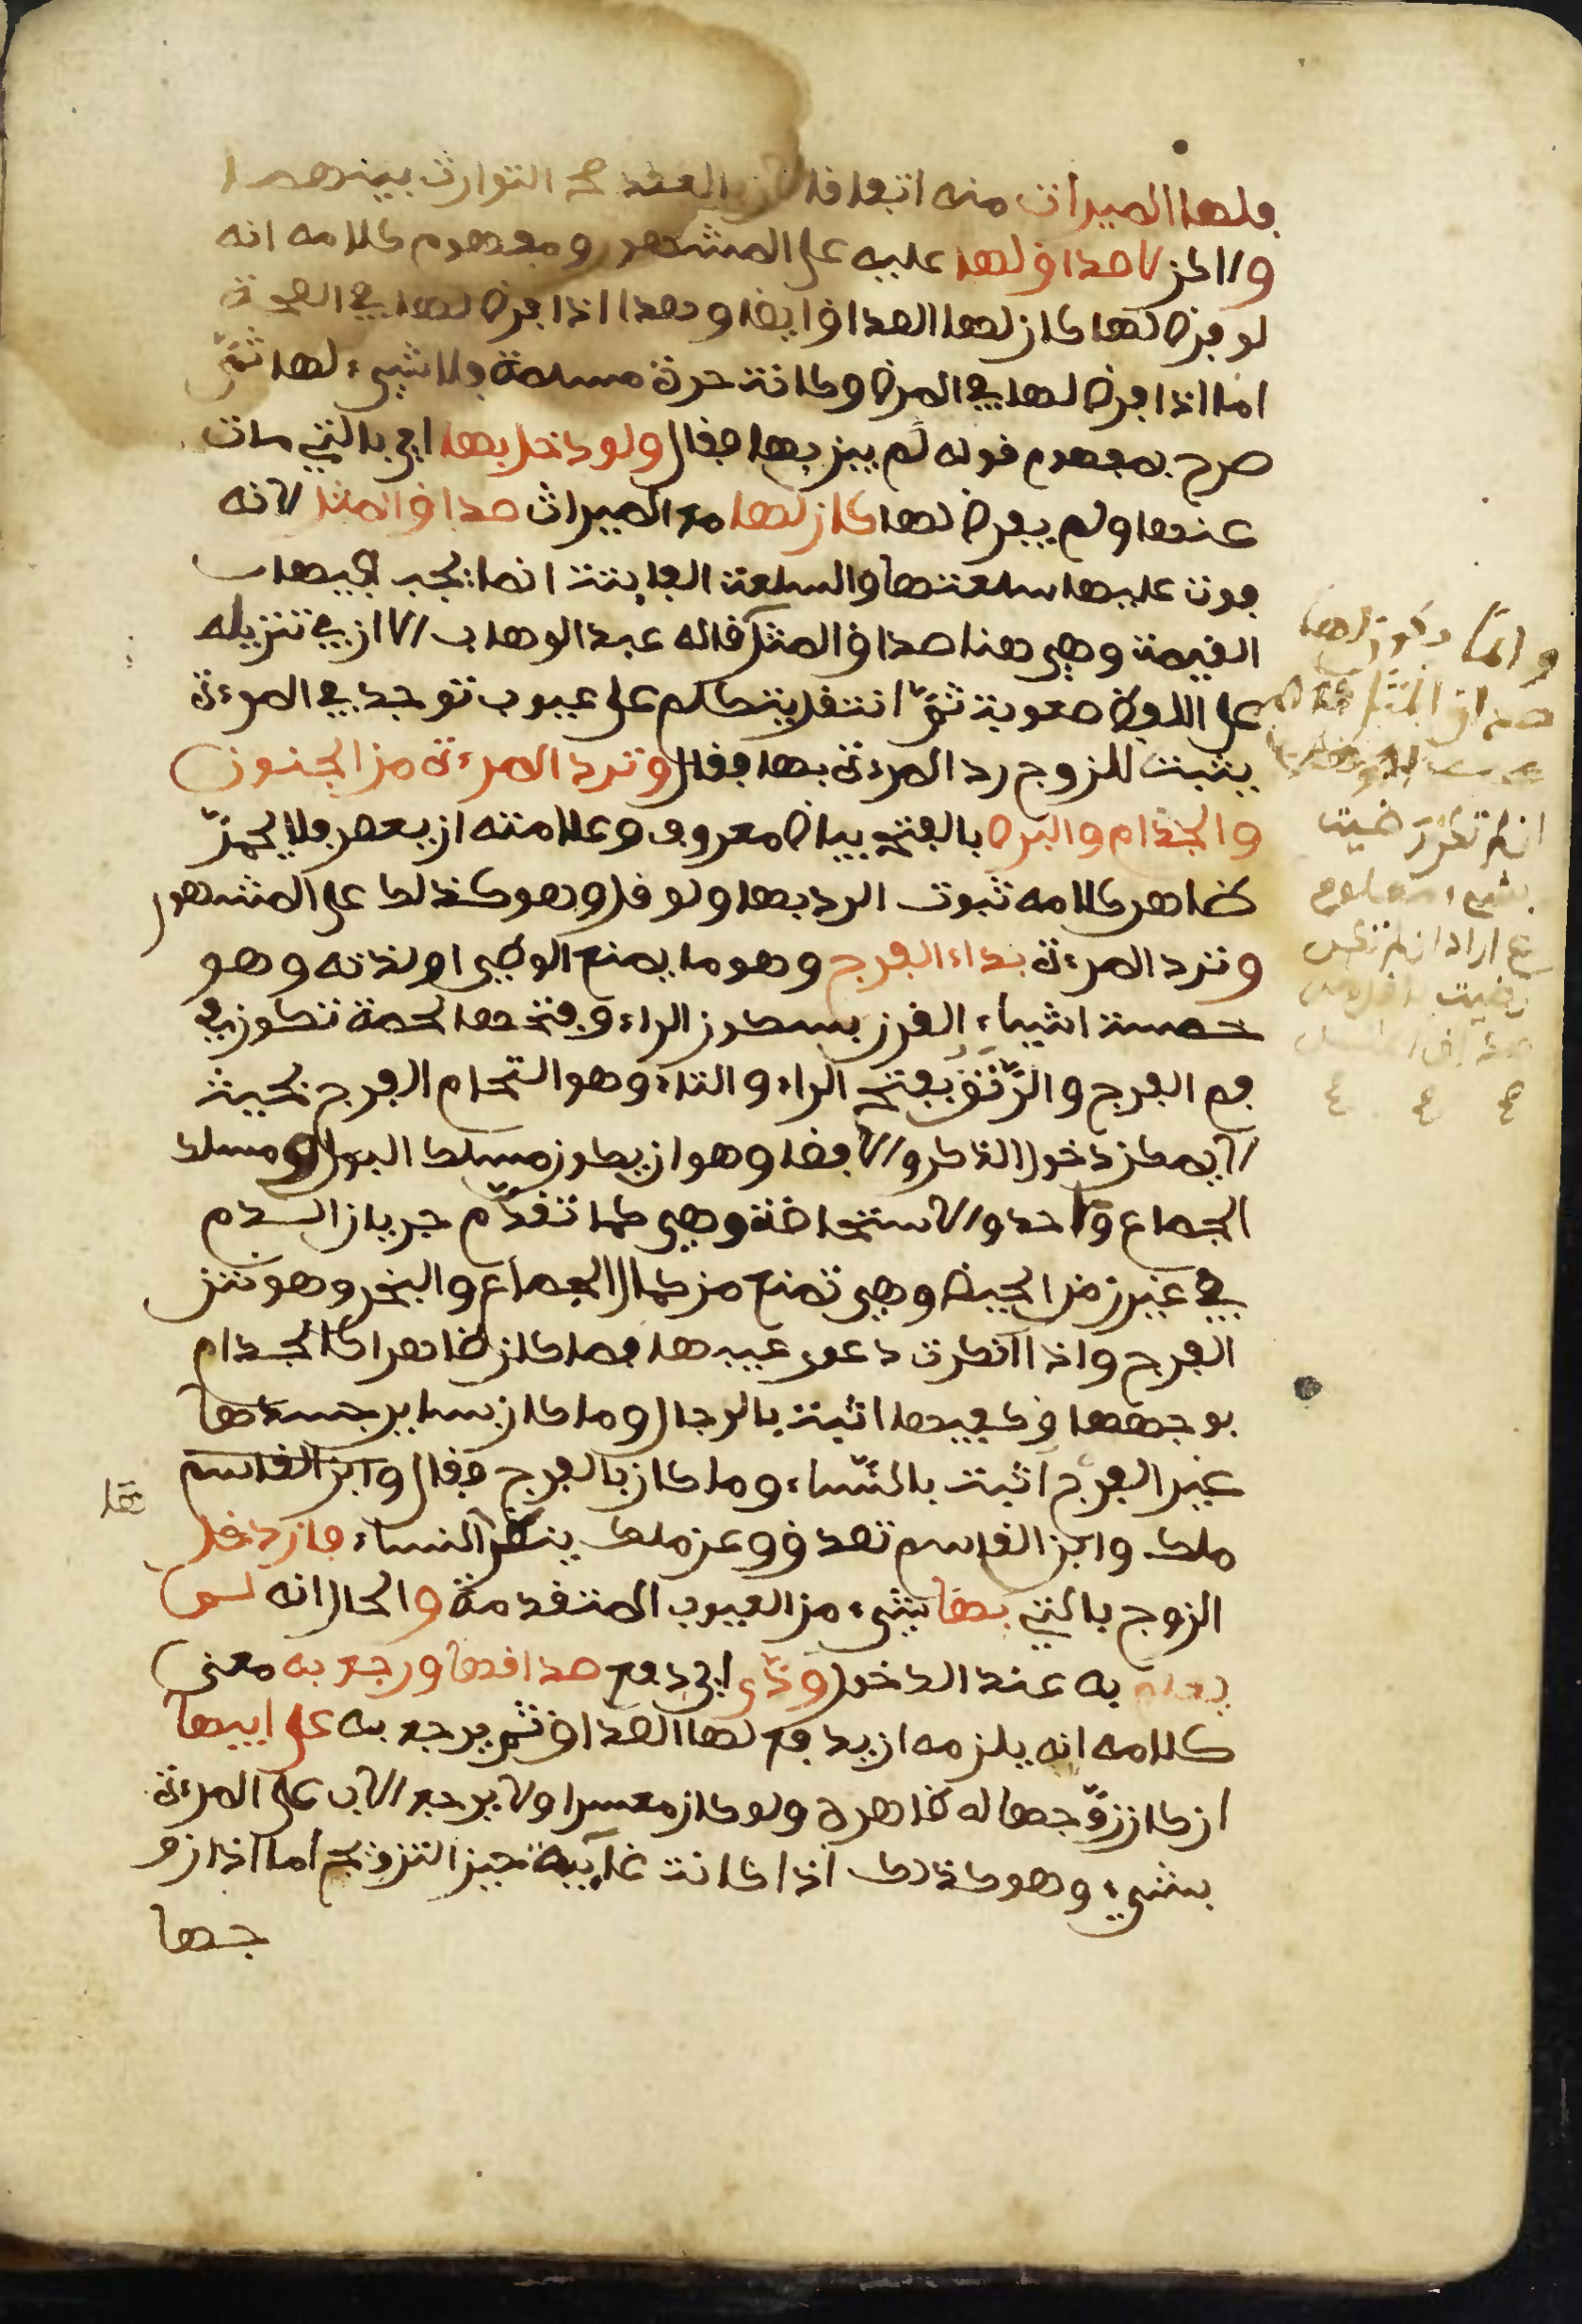 فلها الميراث منه اتفاقا لان العقد صح التوارث بينهما
ولاكن لا صداق لها عليه على المشهور ومفهوم كلامه انه
لو فرض لها كان لها الصداق ايضا وهذا اذا فرض لها في الصحة
اما اذا فرض لها في المرض وكانت حرة مسلمة فلا شيء لها ثمّ
صرح بمفهوم قوله لم يبن بها فقال ولو دخل بها اي بالتي مات
عنها ولم يفرض لها كان لها مع الميراث صداق المثل لانه
فوت عليها سلعتها والسلعة الفايتة انما يجب فيها
القيمة وهي هنا صداق المثل قاله عبد الوهاب الا ان في تنزيله
على اللفظ صعوبة ثمّ انتقل يتكلم على عيوب توجد في المرءة
يثبت للزوج رد المرءة بها فقال وترد المرءة من الجنون
والجذام والبرص بالفتح بياض معروف وعلامته ان يعصر فلا يحمرّ
ظاهر كلامه ثبوت الرد بها ولو قل وهو كذلك على المشهور
وترد المرءة بداء الفرج وهو ما يمنع الوطي او لذته وهو
خمسة اشياء القرن بسكون الراء وفتحها لحمة تكون في
فم الفرج والرّتق بفتح الراء والتاء وهو التحام الفرج بحيث
لا يمكن دخول الذكر والافضا وهو ان يكون مسلك البول ومسلك
الجماع واحد والاستحاضة وهي كما تقدّم جريان الدم
في غير زمن الحيض وهي تمنع من كمال الجماع والبخر وهو نتن
الفرج واذا انكرت دعوى عيبها فما كان ظاهرا كالجذام
بوجهها وكفيها اثبت بالرجال وما كان بساير جسدها
غير الفرج اثبت بالنّساء وما كان بالفرج فقال وابن القاسم
ملك وابن القاسم تصدق وعن ملك ينظر النساء فان دخل
الزوج بالتي بها شيء من العيوب المتقدمة والحال انه لم
يعلم به عند الدخول ودّى اي دفع صداقها ورجع به معنى
كلامه انه يلزمه ان يدفع لها الصداق ثم يرجع به على ابيها
ان كان زوّجها له ظاهره ولو كان معسرا ولا يرجع الاب على المرءة
بشيء وهو كذلك اذا كانت غايبة حين التزويج اما اذا زو
جها
وانما يكون لها
صداق المثل
ان لم تكن رضيت
بشيء معلوم